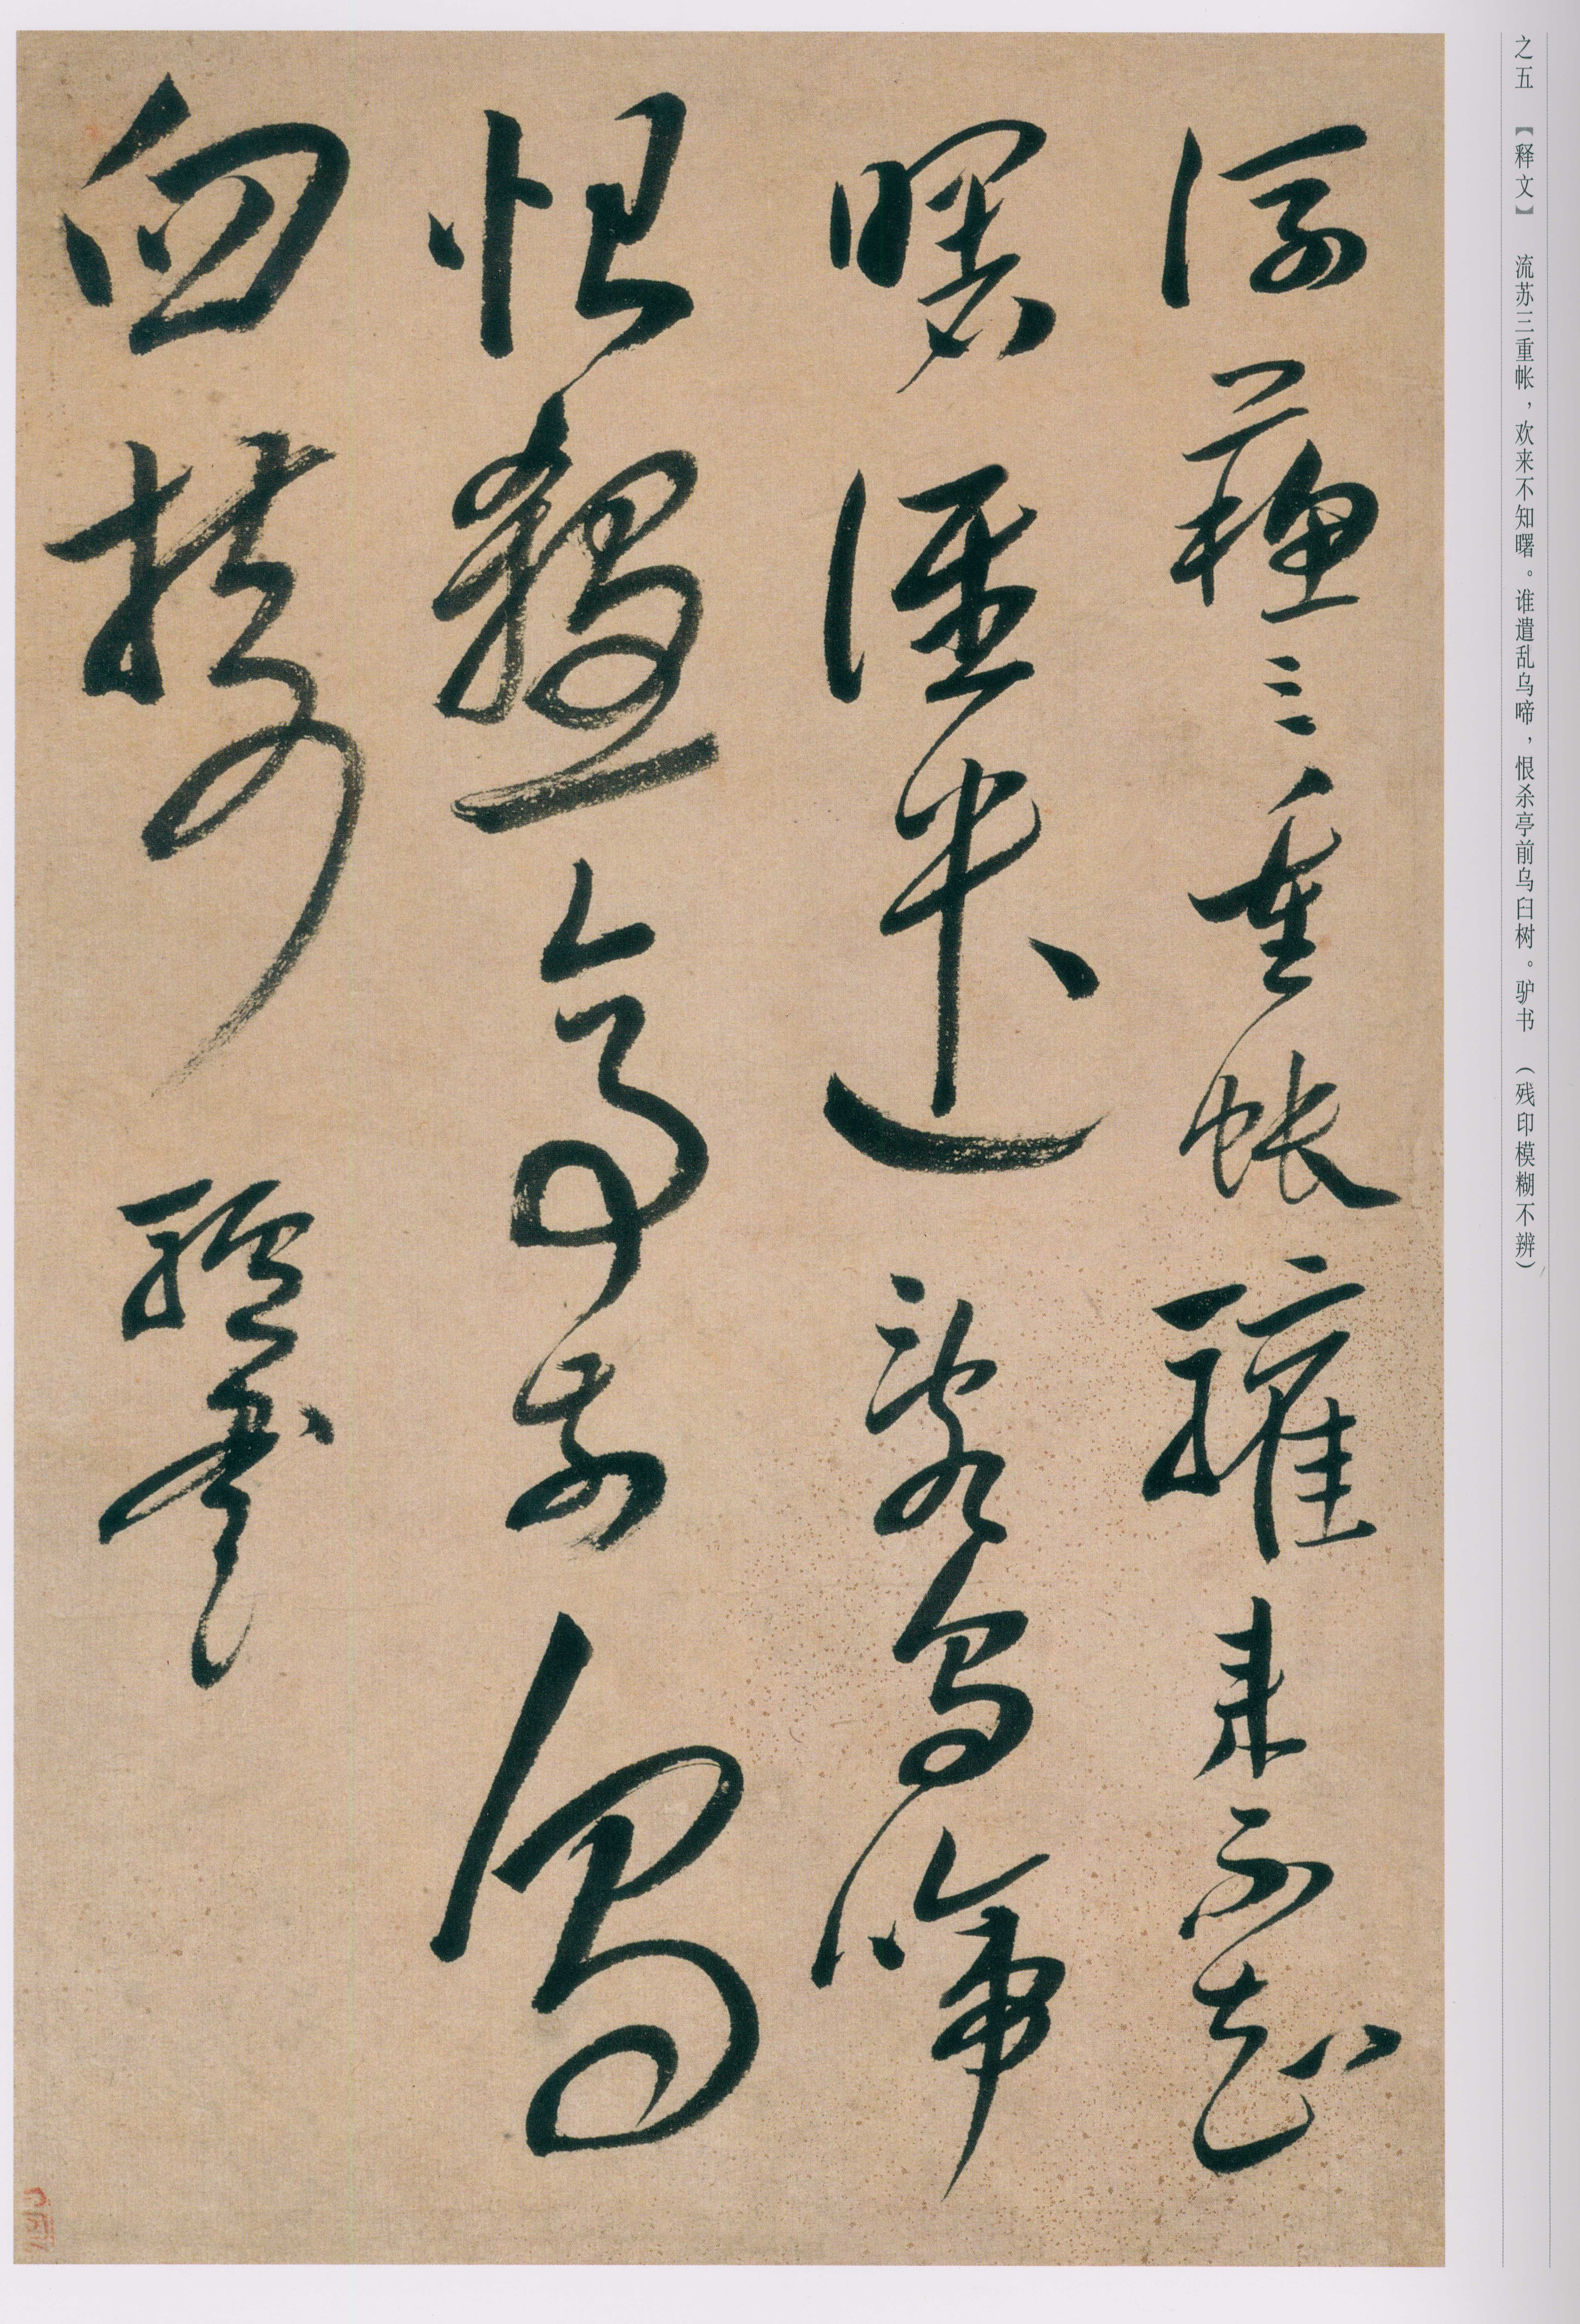 之五 【释文】 流苏三重帐，欢来不知曙。谁遣乱乌啼，恨杀亭前乌臼树。驴书 （残印模糊不辨）
流蘇三重帳驩来不知
曙誰遣亂烏啼
恨殺亭前烏
臼樹 驢書